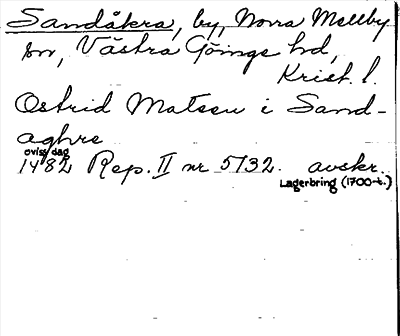 Sandåkra, by, Norra Mellby
sn, Västra Göinge hd,
Krist. l.
Ostrid Matssu i Sand-
aghre
oviss dag
1482 Rep. II nr 5132. avskr.
Lagerbring (1700-t.)